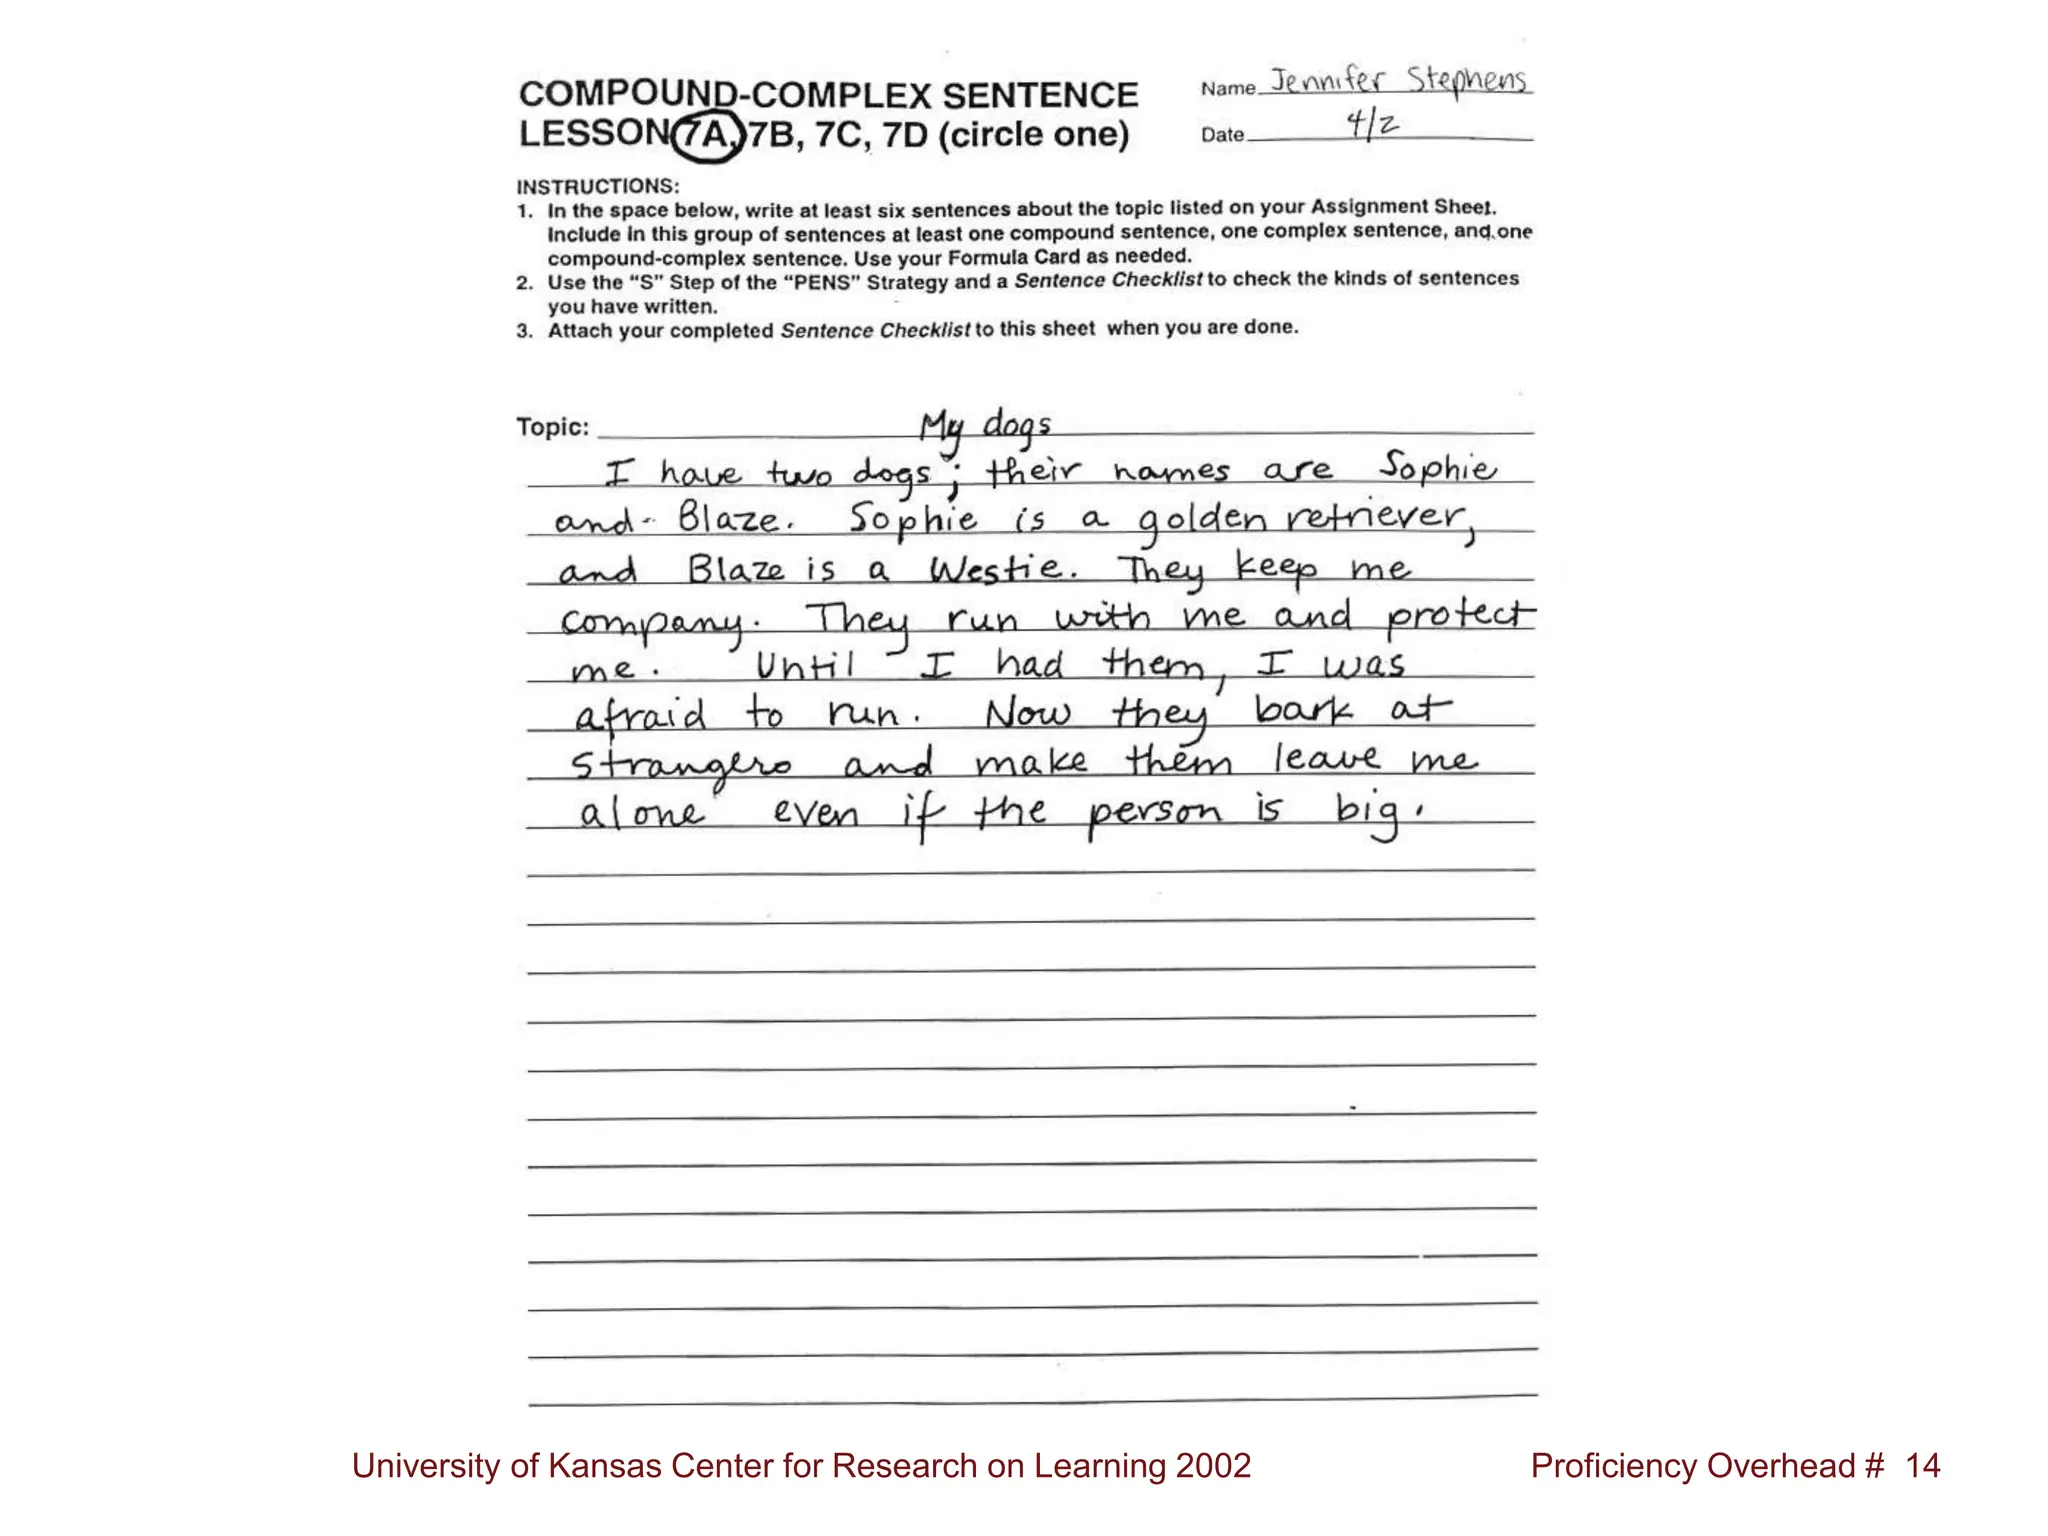 COMPOUND-COMPLEX SENTENCE
LESSON 7A, 7B, 7C, 7D (circle one)
Name Jennifer Stephens
Date 4/2
INSTRUCTIONS:
1. In the space below, write at least six sentences about the topic listed on your Assignment Sheet.
Include in this group of sentences at least one compound sentence, one complex sentence, and one
compound-complex sentence. Use your Formula Card as needed.
2. Use the “S” Step of the “PENS” Strategy and a Sentence Checklist to check the kinds of sentences
you have written.
3. Attach your completed Sentence Checklist to this sheet when you are done.
Topic: My dogs
I have two dogs; their names are Sophie
and Blaze. Sophie is a golden retriever,
and Blaze is a Westie. They keep me
company. They run with me and protect
me. Until I had them, I was
afraid to run. Now they bark at
strangers and make them leave me
alone even if the person is big.
University of Kansas Center for Research on Learning 2002
Proficiency Overhead # 14